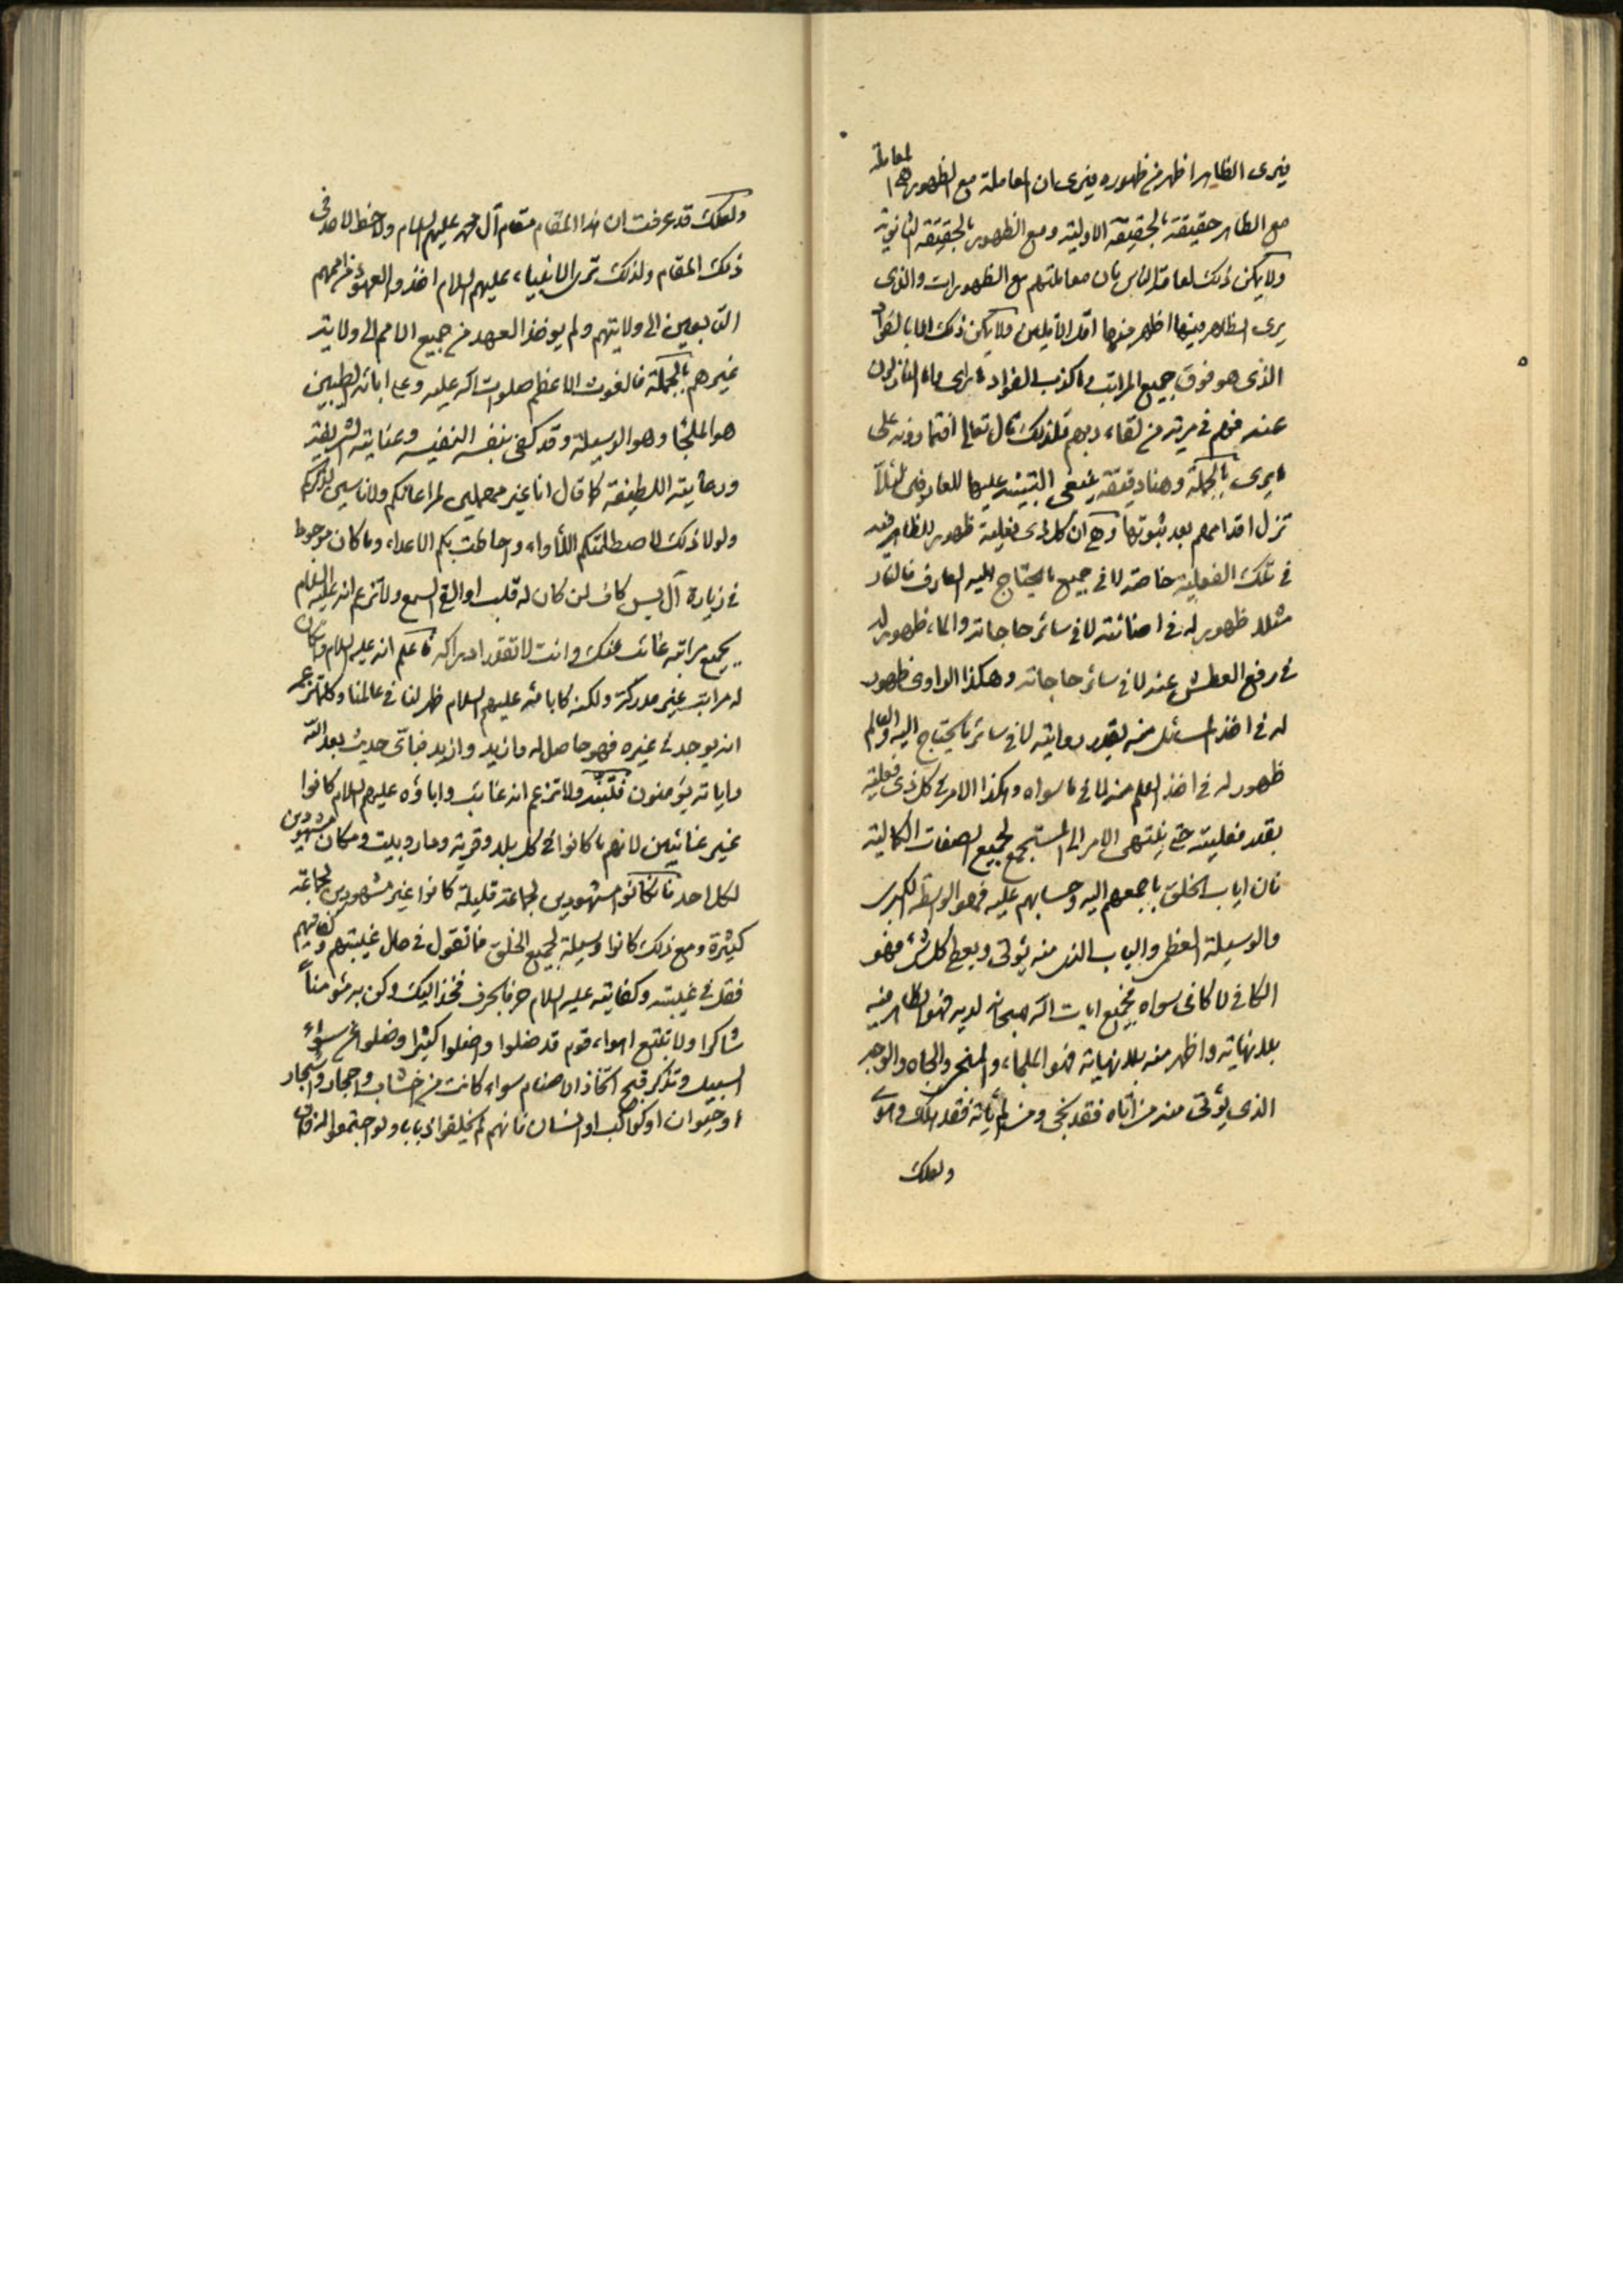 فيرى الظاهر اظهر من ظهوره فيرى ان المعاملة مع الظهور هى المعاملة
مع الظاهر حقيقة بالحقيقة الاولية ومع الظهور بالحقيقة الثانوية
ولا يمكن ذلك لعامة الناس فان معاملتهم مع الظهورات والذى
يرى الظاهر فيها اظهر منها اقل الاقلين ولا يمكن ذلك الا بالفؤاد
الذى هو فوق جميع المراتب ما كذب الفؤاد ما راى واما النازلون
عنه فهم فى مرية من لقاء ربهم فلذلك قال تعالى افتمارونه على
ما يرى بالجملة وهنا دقيقة ينبغى التنبيه عليها للعارفين لئلا
تزل اقدامهم بعد ثبوتها وهى ان كل ذى فعلية ظهور للظاهر فيه
فى تلك الفعلية خاصة لا فى جميع ما يحتاج اليه العارف فالنار
مثلا ظهور له فى اضائته لا فى سائر حاجاته والماء ظهور له
فى رفع العطش عنه لا فى سائر حاجاته وهكذا الراوى ظهور
له فى اخذ المسائل منه بقدر روايته لا فى سائر ما يحتاج اليه والعالم
ظهور له فى اخذ العلم منه لا فى ما سواه وهكذا الامر فى كل ذى فعلية
بقدر فعليته حتى ينتهى الامر الى المستجمع لجميع الصفات الكمالية
فان اياب الخلق باجمعهم اليه وحسابهم عليه فهو الواسطة الكبرى
والوسيلة العظمى والباب الذى منه يؤتى ويعطى كل شئ فهو
الكافى لا كافى سواه فجميع ايات الله سبحانه لديه فهو الظاهر فيه
بلا نهاية واظهر منه بلا نهاية فهو الملجاء والمنجى والجاه والوجه
الذى يؤتى منه من اتاه فقد نجى ومن لم ياته فقد هلك وهوى
ولعلك
ولعلك قد عرفت ان هذا المقام مقام آل محمد عليهم السلام ولا حظ لاحد فى
ذلك المقام ولذلك ترى الانبياء عليهم السلام اخذوا العهود من اممهم
التابعين الى ولايتهم ولم يوخذ العهد من جميع الامم الى ولاية
غيرهم بالجملة فالغوث الاعظم صلوات الله عليه وعلى ابائه الطيبين
هو الملجأ وهو الوسيلة وقد كفى بنفسه النفيسه وعنايته الشريفة
ورعايته اللطيفة كما قال انا غير مهملين لمراعاتكم ولا ناسين لذكركم
ولولا ذلك لاصطلمتكم اللأواء واحاطت بكم الاعداء وما كان موجودا
فى زيارة آل يس كاف لمن كان له قلب او القى السمع ولا تزعم انه عليه السلام
بجميع مراتبه غائب عنك وانت لا تقدر ادراكه فاعلم انه عليه السلام وان كان
له مراتب غير مدركة ولكنه كابائه عليهم السلام ظهر لنا فى عالمنا وكلما ترجو
انه يوجد فى غيره فهو حاصل له وازيد وازيد فباى حديث بعد الله
واياته يؤمنون فتنبه ولا تزعم انه غائب واباؤه عليهم السلام كانوا
غير غائبين لانهم ما كانوا فى كل بلد وقرية ودار وبيت ومكان مشهودين
لكل احد فان كانوا مشهودين لجماعة قليلة كانوا غير مشهودين لجماعة
كثيرة ومع ذلك كانوا وسيلة لجميع الخلق فما تقول فى حال غيبتهم وكفايتهم
فقل فى غيبته وكفايته عليه السلام حرفا بحرف فخذ اليك وكن به مؤمناً
شاكرا ولا تتبع اهواء قوم قد ضلوا واضلوا كثيرا وضلوا عن سواء
السبيل وتذكر قبح اتخاذ الاصنام سواء كانت من اخشاب واحجار واشجار
او حيوان او كواكب او انسان فانهم لم يخلقوا ذبابا ولو اجتمعوا له وان